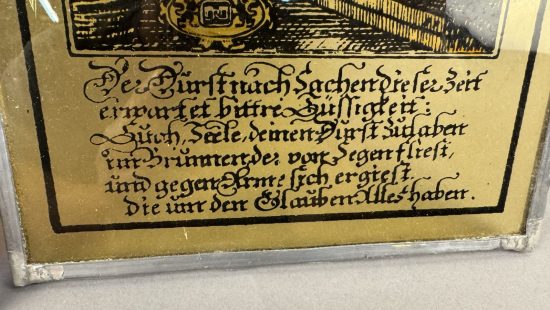 Der Durst nach Sachen dieser Zeit
erwartet bittre Süssigkeit:
Such, Seele, deinen Durst zu laben
im Brunnen, der von Segen fliest,
und gegen Arme sich ergiest,
die um den Glauben Alles haben.